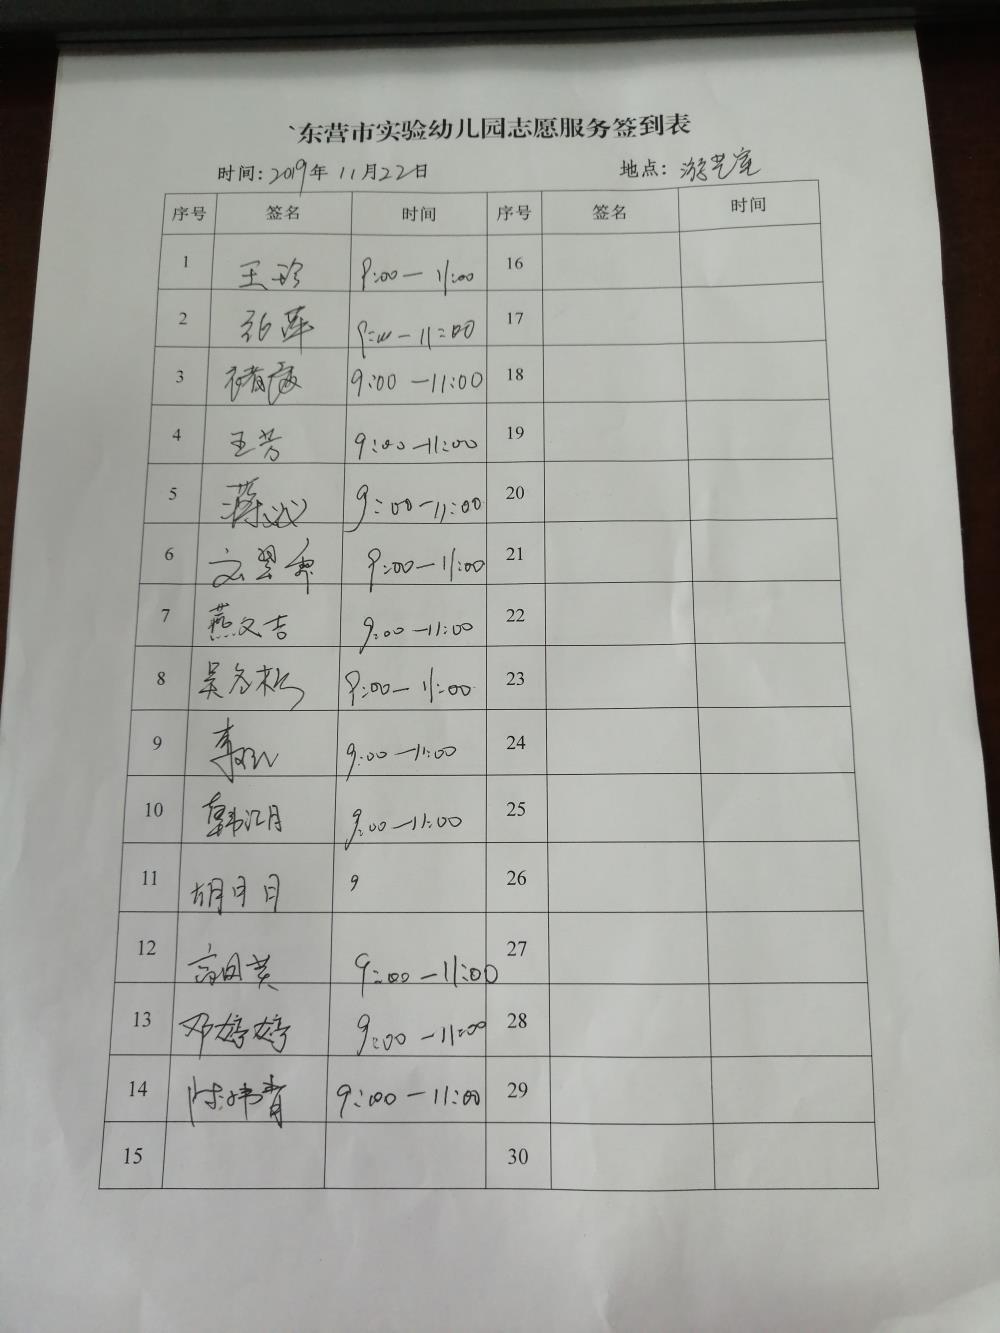 东营市实验幼儿园志愿服务签到表
时间: 2019年 11月22日 地点: 游艺室
序号 签名 时间 序号 签名 时间
1 王珍 9:00—11:00 16
2 9:00—11:00 17
3 褚霞 9:00—11:00 18
4 王芳 9:00—11:00 19
5 9:00—11:00 20
6 9:00—11:00 21
7 燕文吉 9:00—11:00 22
8 吴冬松 9:00—11:00 23
9 9:00—11:00 24
10 韩江月 9:00—11:00 25
11 胡月日 9 26
12 高国英 9:00—11:00 27
13 邓婷婷 9:00—11:00 28
14 陈炜青 9:00—11:00 29
15 30